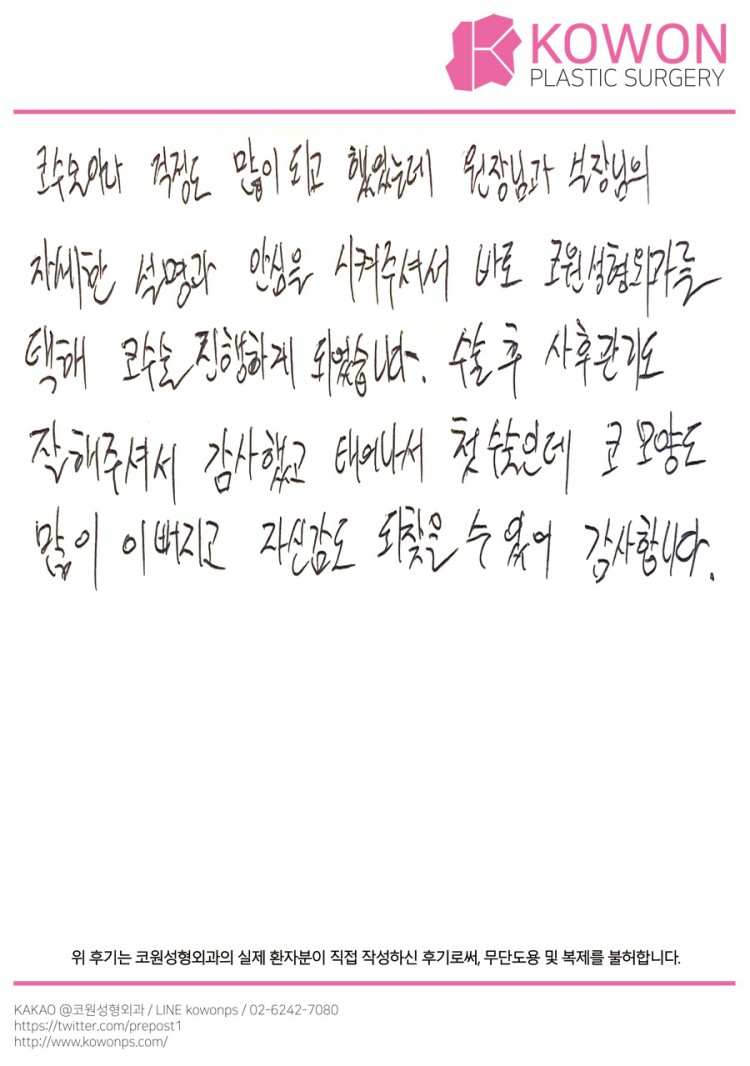 KOWON
PLASTIC SURGERY
걱정도 많이 되고 했었는데 원장님과 실장님의
자세한 설명과 안심을 시켜주셔서 바로 코원성형외과를
택해 코수술 진행하게 되었습니다. 수술 후 사후관리도
잘해주셔서 감사했고 태어나서 첫 수술인데 코 모양도
많이 이뻐지고 자신감도 되찾을 수 있어 감사합니다.
위 후기는 코원성형외과의 실제 환자분이 직접 작성하신 후기로써, 무단도용 및 복제를 불허합니다.
KAKAO @코원성형외과 / LINE kowonps / 02-6242-7080
https://twitter.com/prepost1
http://www.kowonps.com/